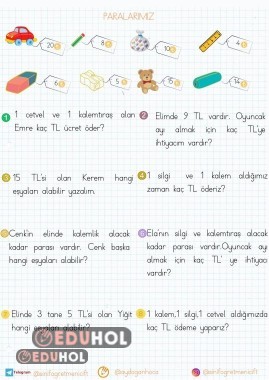 PARALARIMIZ
20₺ 8₺ 10₺ 4₺
6₺ 5₺ 15₺ 14₺
1 1 cetvel ve 1 kalemtıraş alan
Emre kaç TL ücret öder?
2 Elimde 9 TL vardır. Oyuncak
ayı almak için kaç TL'ye
ihtiyacım vardır?
3 15 TL'si olan Kerem hangi
eşyaları alabilir yazalım.
4 1 silgi ve 1 kalem aldığımız
zaman kaç TL öderiz?
5 Cenk'in elinde kalemlik alacak
kadar parası vardır. Cenk başka
hangi eşyaları alabilir?
6 Ela'nın silgi ve kalemtıraş alacak
kadar parası vardır.Oyuncak ayı
almak için kaç TL' ye ihtiyacı
vardır?
7 Elinde 3 tane 5 TL'si olan Yiğit
hangi eşyaları alabilir?
8 1 kalem,1 silgi,1 cetvel aldığımızda
kaç TL ödeme yaparız?
EDUHOL
EDUHOL
Telegram